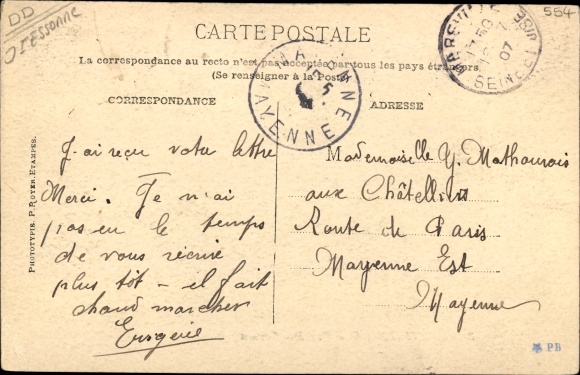 DD
554
CARTE POSTALE
La correspondance au recto n'est pas acceptée par tous les pays étrangers
(Se renseigner à la Poste)
CORRESPONDANCE
ADRESSE
J'ai reçu votre lettre
Merci. Je n'ai
pas eu le temps
de vous écrire
plus tôt - il fait
chaud marcher
Eugénie
Mademoiselle Y.
aux
Route de Paris
Mayenne Est
Mayenne
PHOTOTYPIE P. ROYER, ETAMPES.
MAYENNE
MAYENNE
07
SEINE
PB